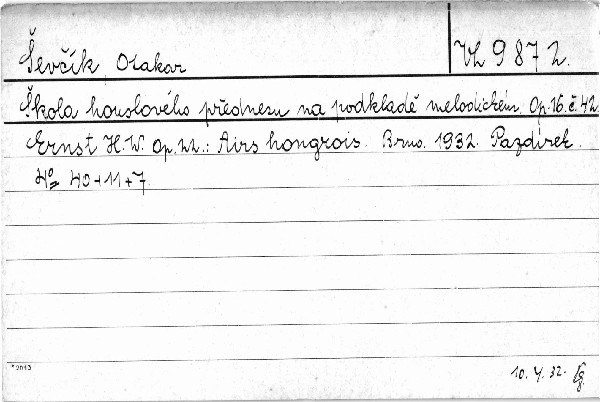 Ševčík Otakar
VL 9872.
Škola houslového přednesu na podkladě melodickém. Op. 16. č. 42.
Ernst H. W. Op. 22.: Airs hongrois. Brno. 1932. Pazdírek.
4° 40+11+7.
* 2013
10. V. 32.